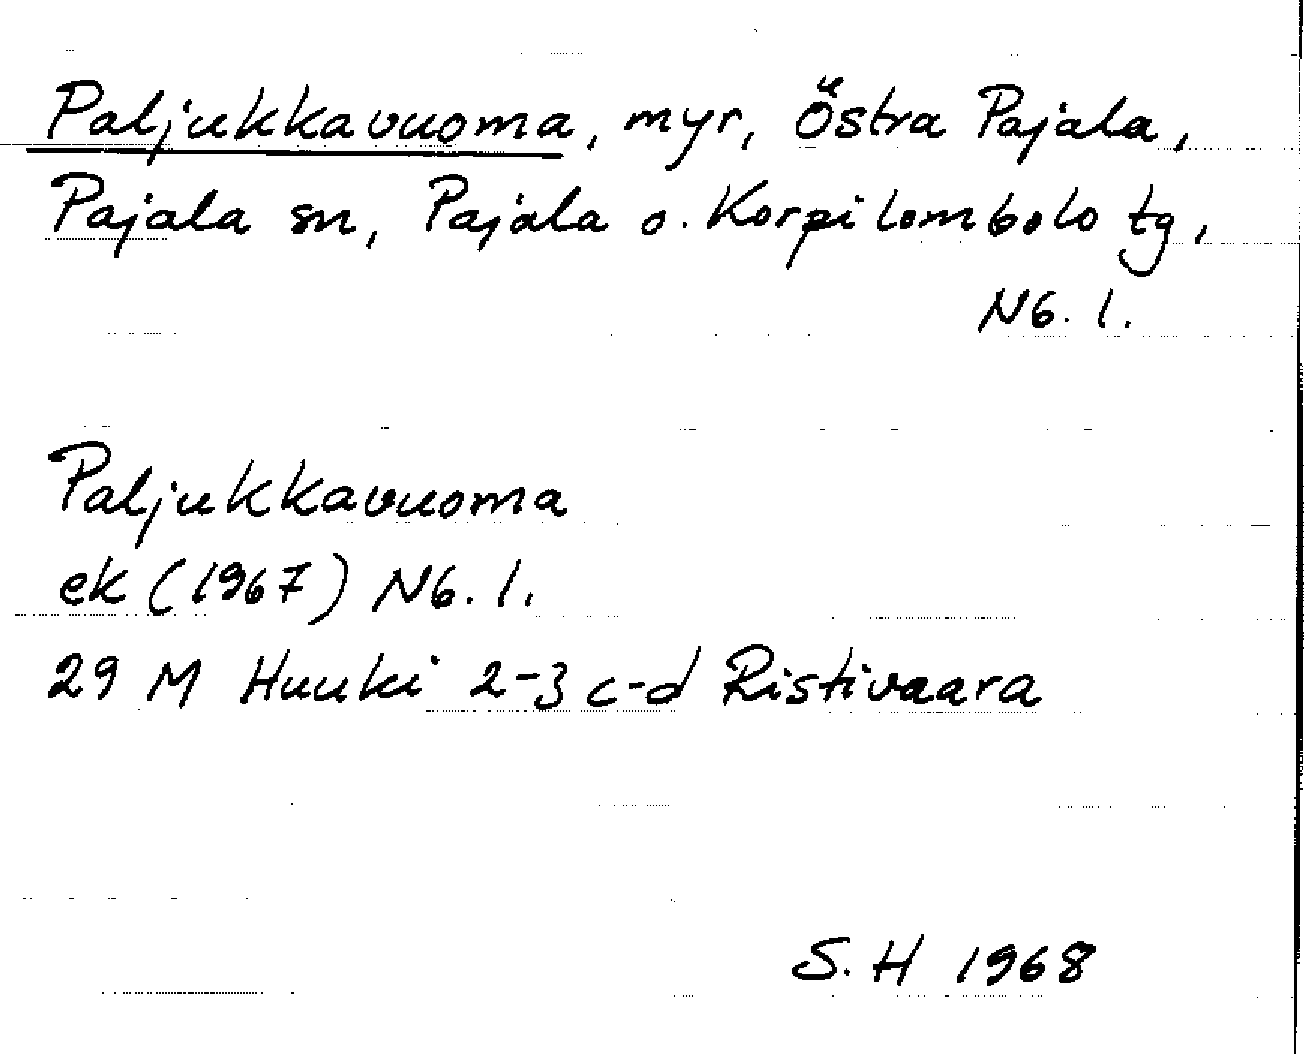 Paljukkavuoma, myr, Östra Pajala,
Pajala sn, Pajala o. Korpilombolo tg,
Nb. l.
Paljukkavuoma
ek (1967) Nb. l.
29 M Huuki 2-3 c-d Ristivaara
S. H 1968